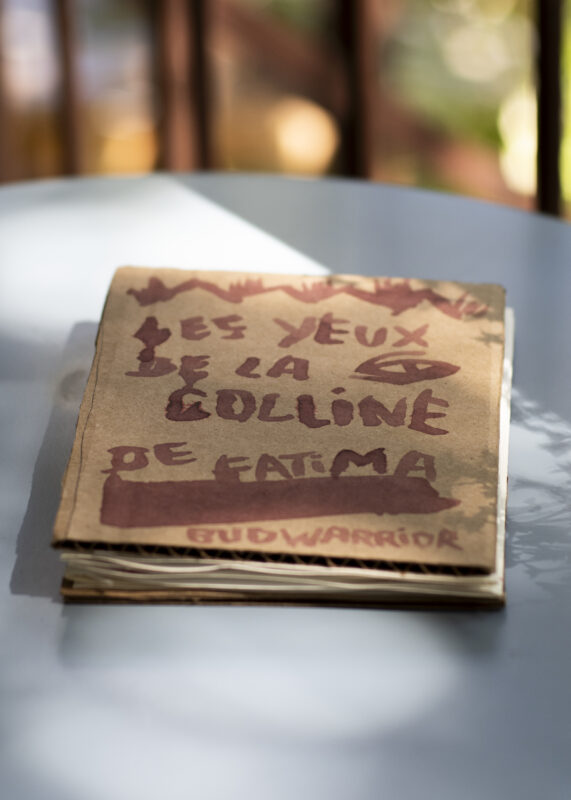 LES YEUX
DE LA
COLLiNE
DE FATiMA
BUDWARRiOR